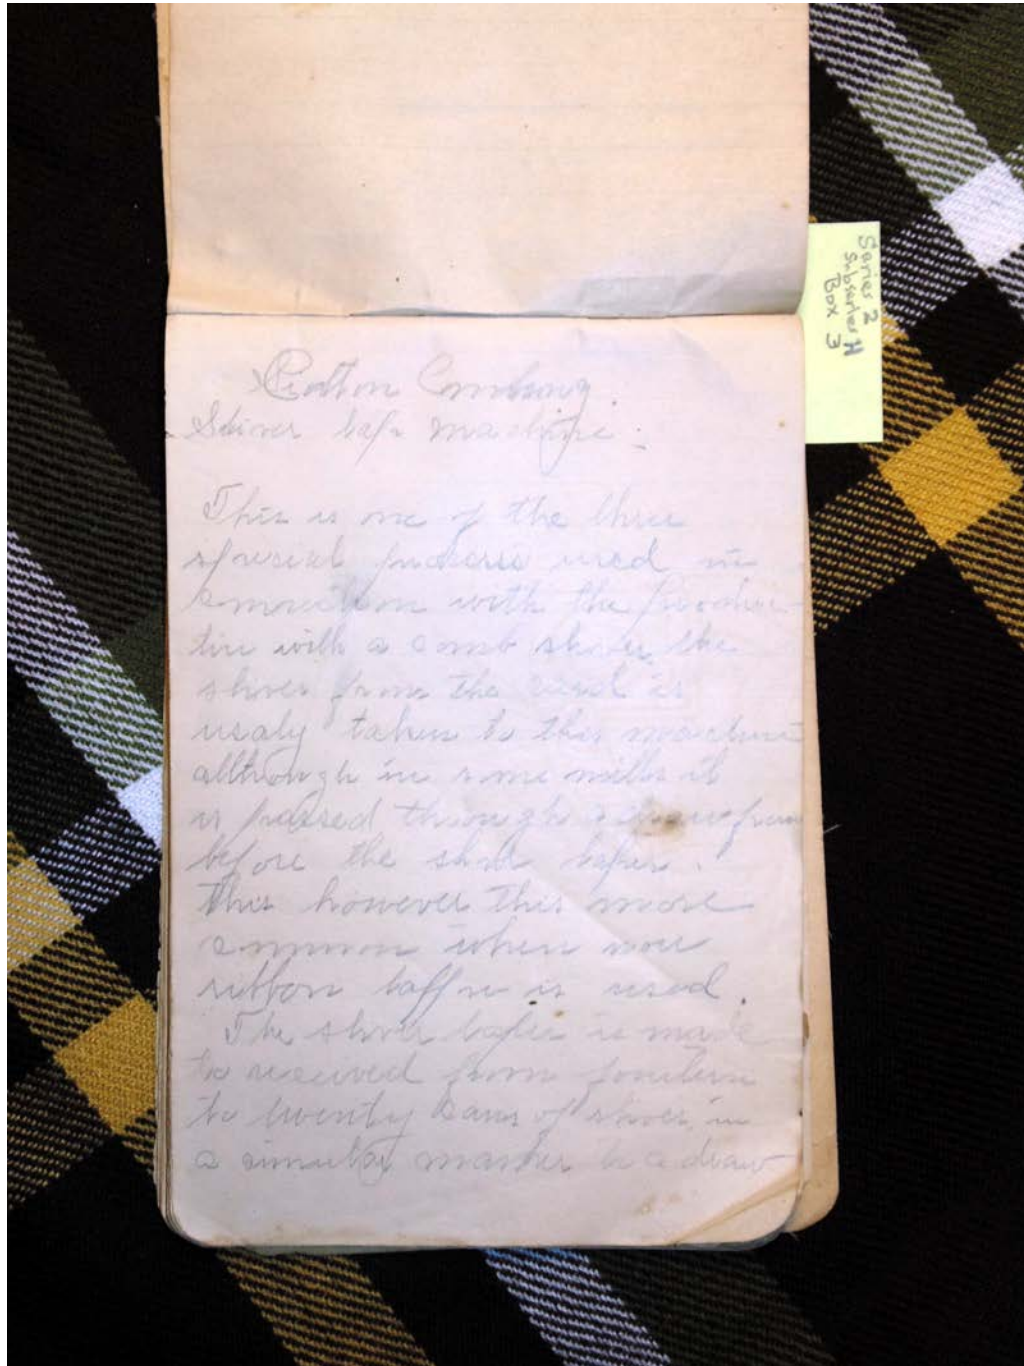 Cotton Combing.
Sliver lap machine.
This is one of the three
special process used in
connection with the produc-
tion with a comb sliver, the
sliver from the card is
usaly taken to this machine
although in some mills it
is passed through a draw fram
before the sliver laper.
this however this more
common when now
ribbon lapper is used.
The sliver laper is made
to received from fourteen
to twenty cans of sliver, in
a simular manner to a draw
Series 2
Subseries H
Box 3